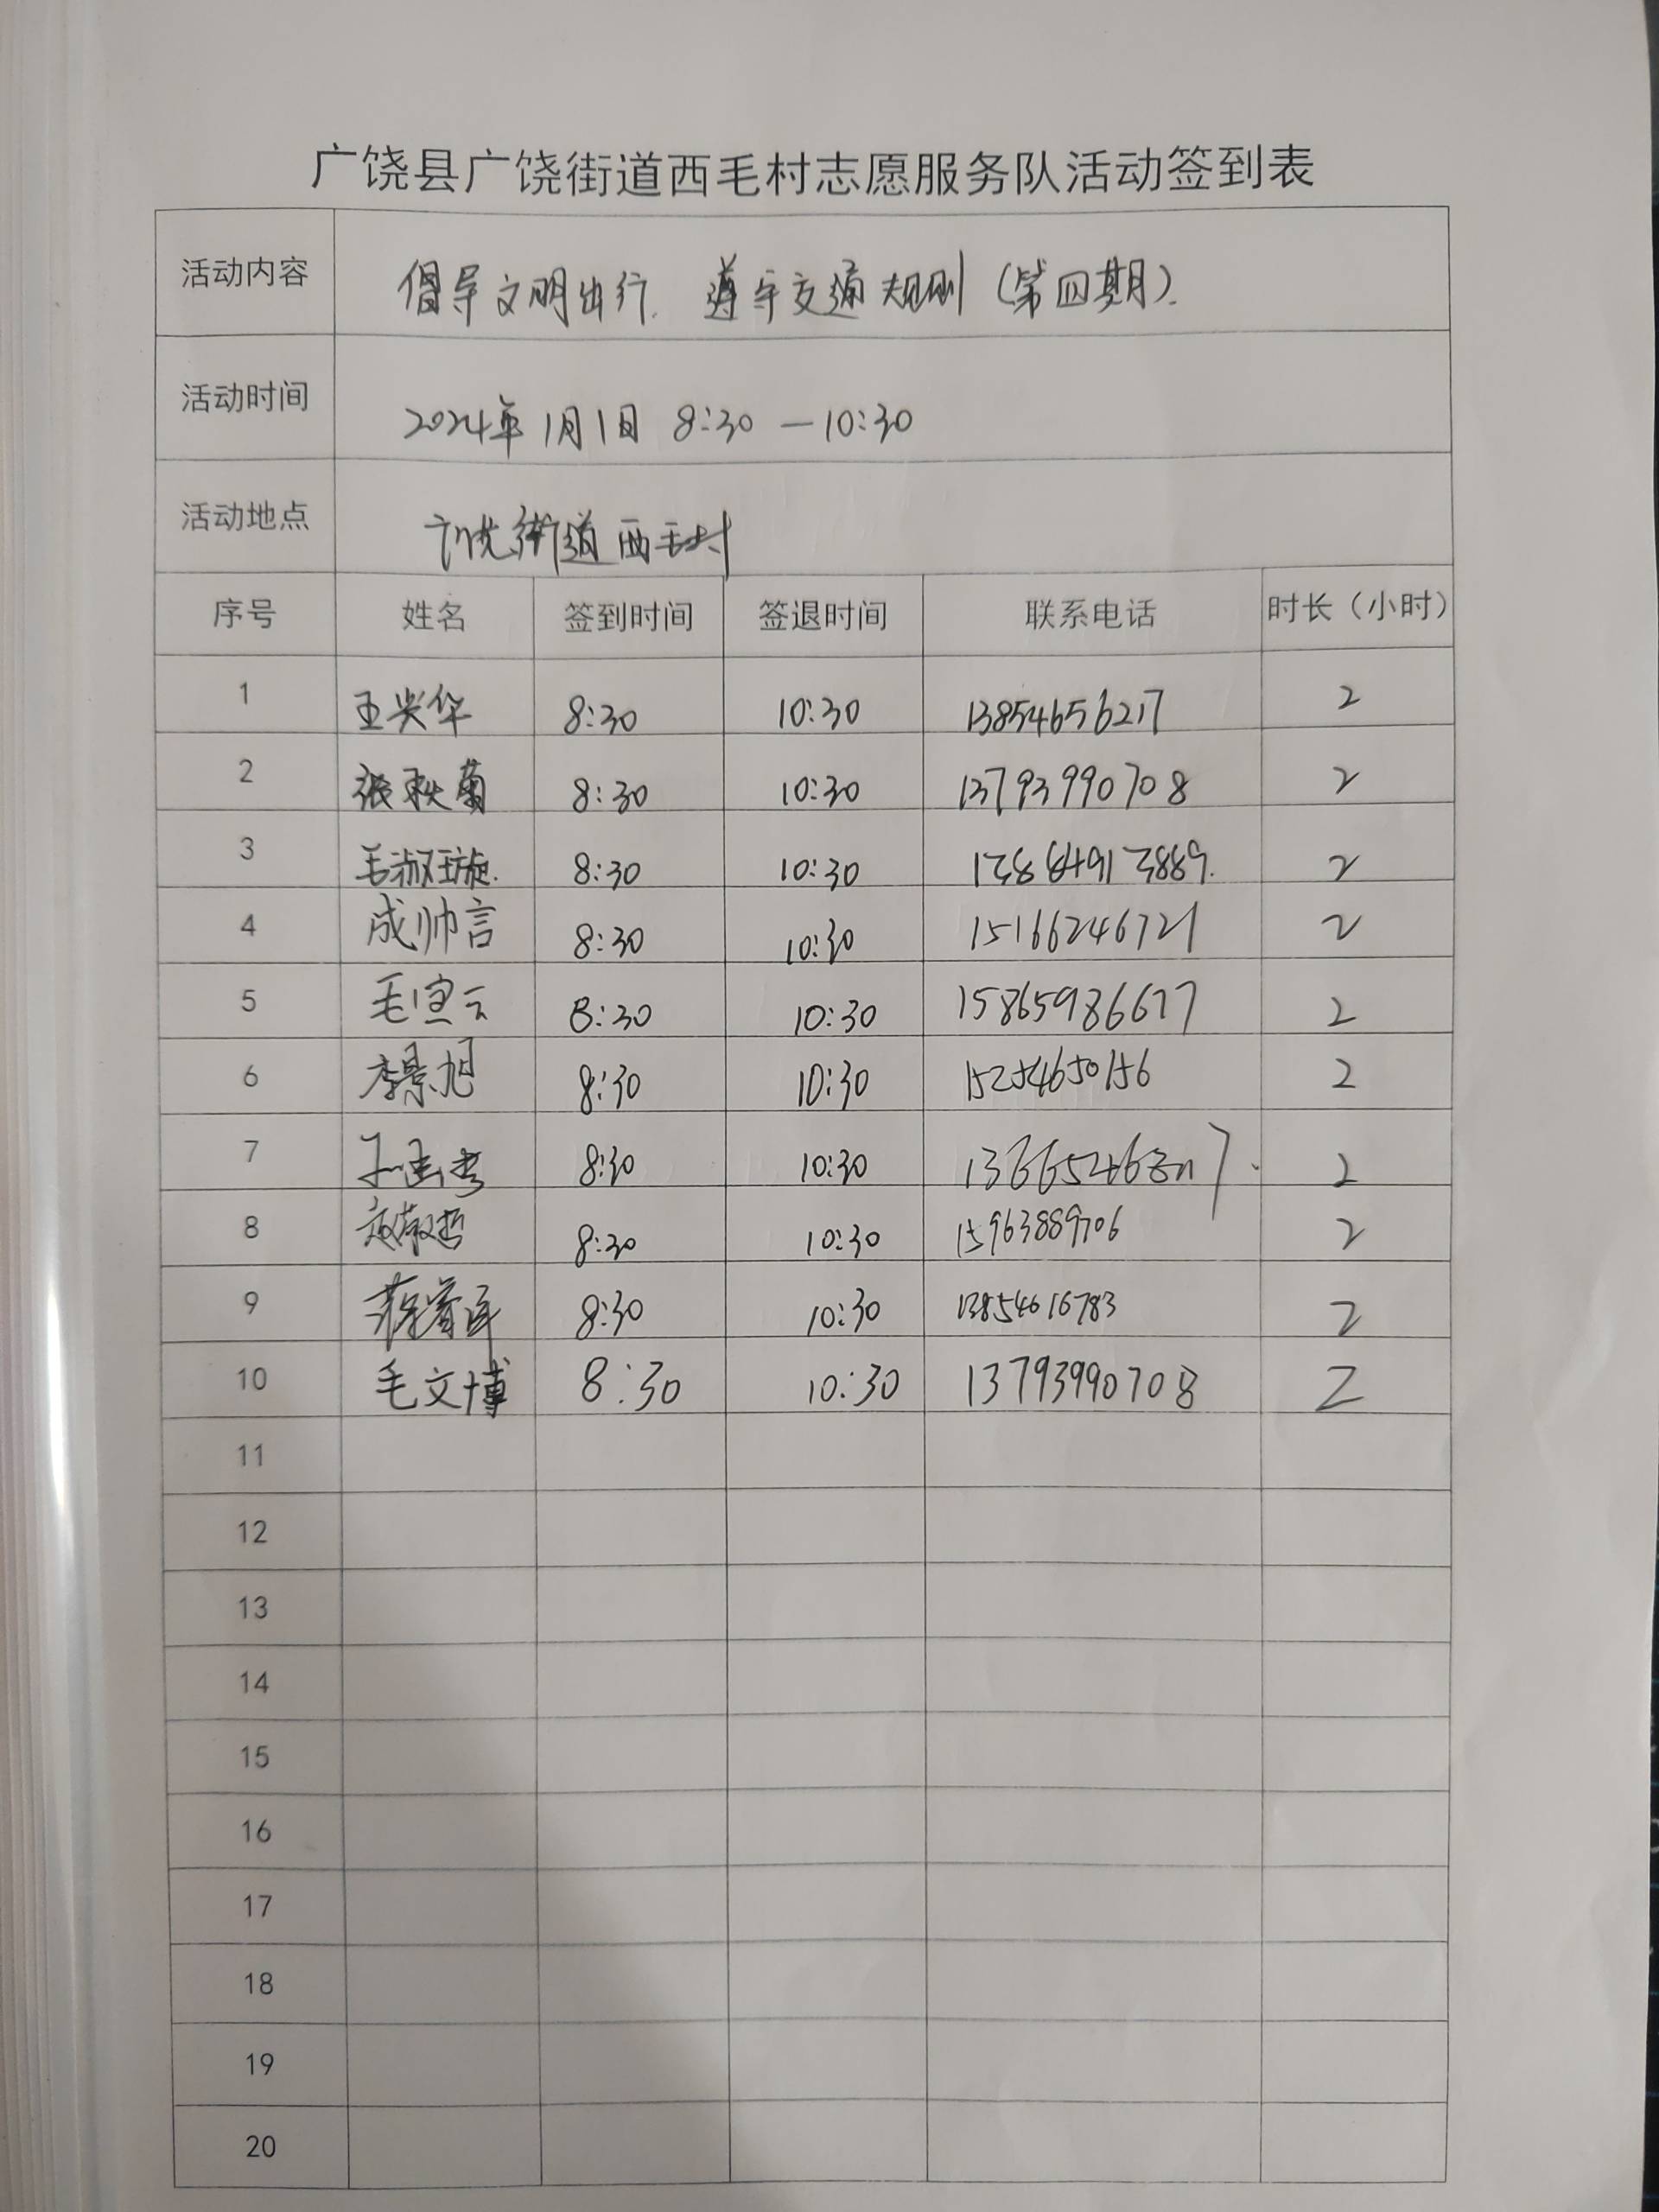 广饶县广饶街道西毛村志愿服务队活动签到表
活动内容 倡导文明出行. 遵守交通规则(第四期).
活动时间 2024年1月1日 8:30 — 10:30
活动地点 广饶街道西毛村
序号 姓名 签到时间 签退时间 联系电话 时长（小时）
1 王兴华 8:30 10:30 13854656217 2
2 张秋菊 8:30 10:30 13793990708 2
3 毛淑璇. 8:30 10:30 2
4 成帅言 8:30 10:30 15166246721 2
5 毛宣云 8:30 10:30 15865986677 2
6 李景旭 8:30 10:30 15254650156 2
7 8:30 10:30 2
8 赵敬哲 8:30 10:30 15963889706 2
9 8:30 10:30 13854616783 2
10 毛文博 8:30 10:30 13793990708 2
11
12
13
14
15
16
17
18
19
20